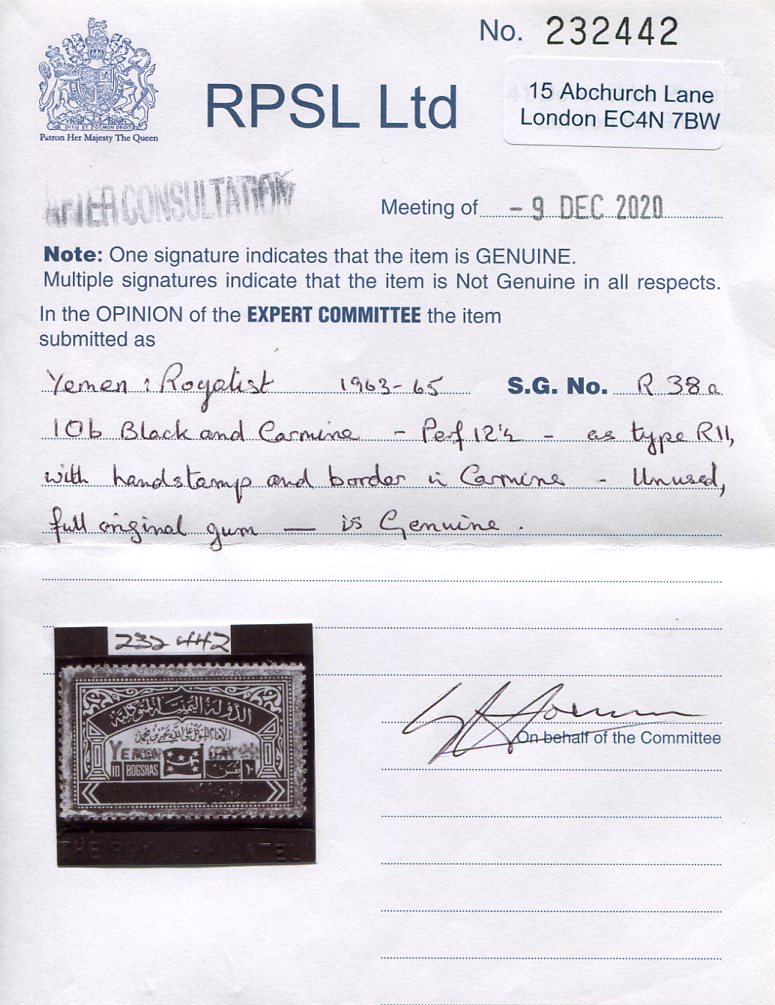 No. 232442
RPSL Ltd
15 Abchurch Lane
London EC4N 7BW
DIEU ET MON DROIT
Patron Her Majesty The Queen
AFTER CONSULTATION
Meeting of - 9 DEC 2020
Note: One signature indicates that the item is GENUINE.
Multiple signatures indicate that the item is Not Genuine in all respects.
In the OPINION of the EXPERT COMMITTEE the item
submitted as
Yemen : Royalist 1963-65 S.G. No. R 38a
10b Black and Carmine - Perf 12½ - as type R11,
with handstamp and border in Carmine - Unused,
full original gum — is Genuine.
232442
الدولة اليمنية المتوكلية
الإمام المتوكل على الله يحيى بن محمد
YEMEN
10 BOGSHAS
١٠
On behalf of the Committee